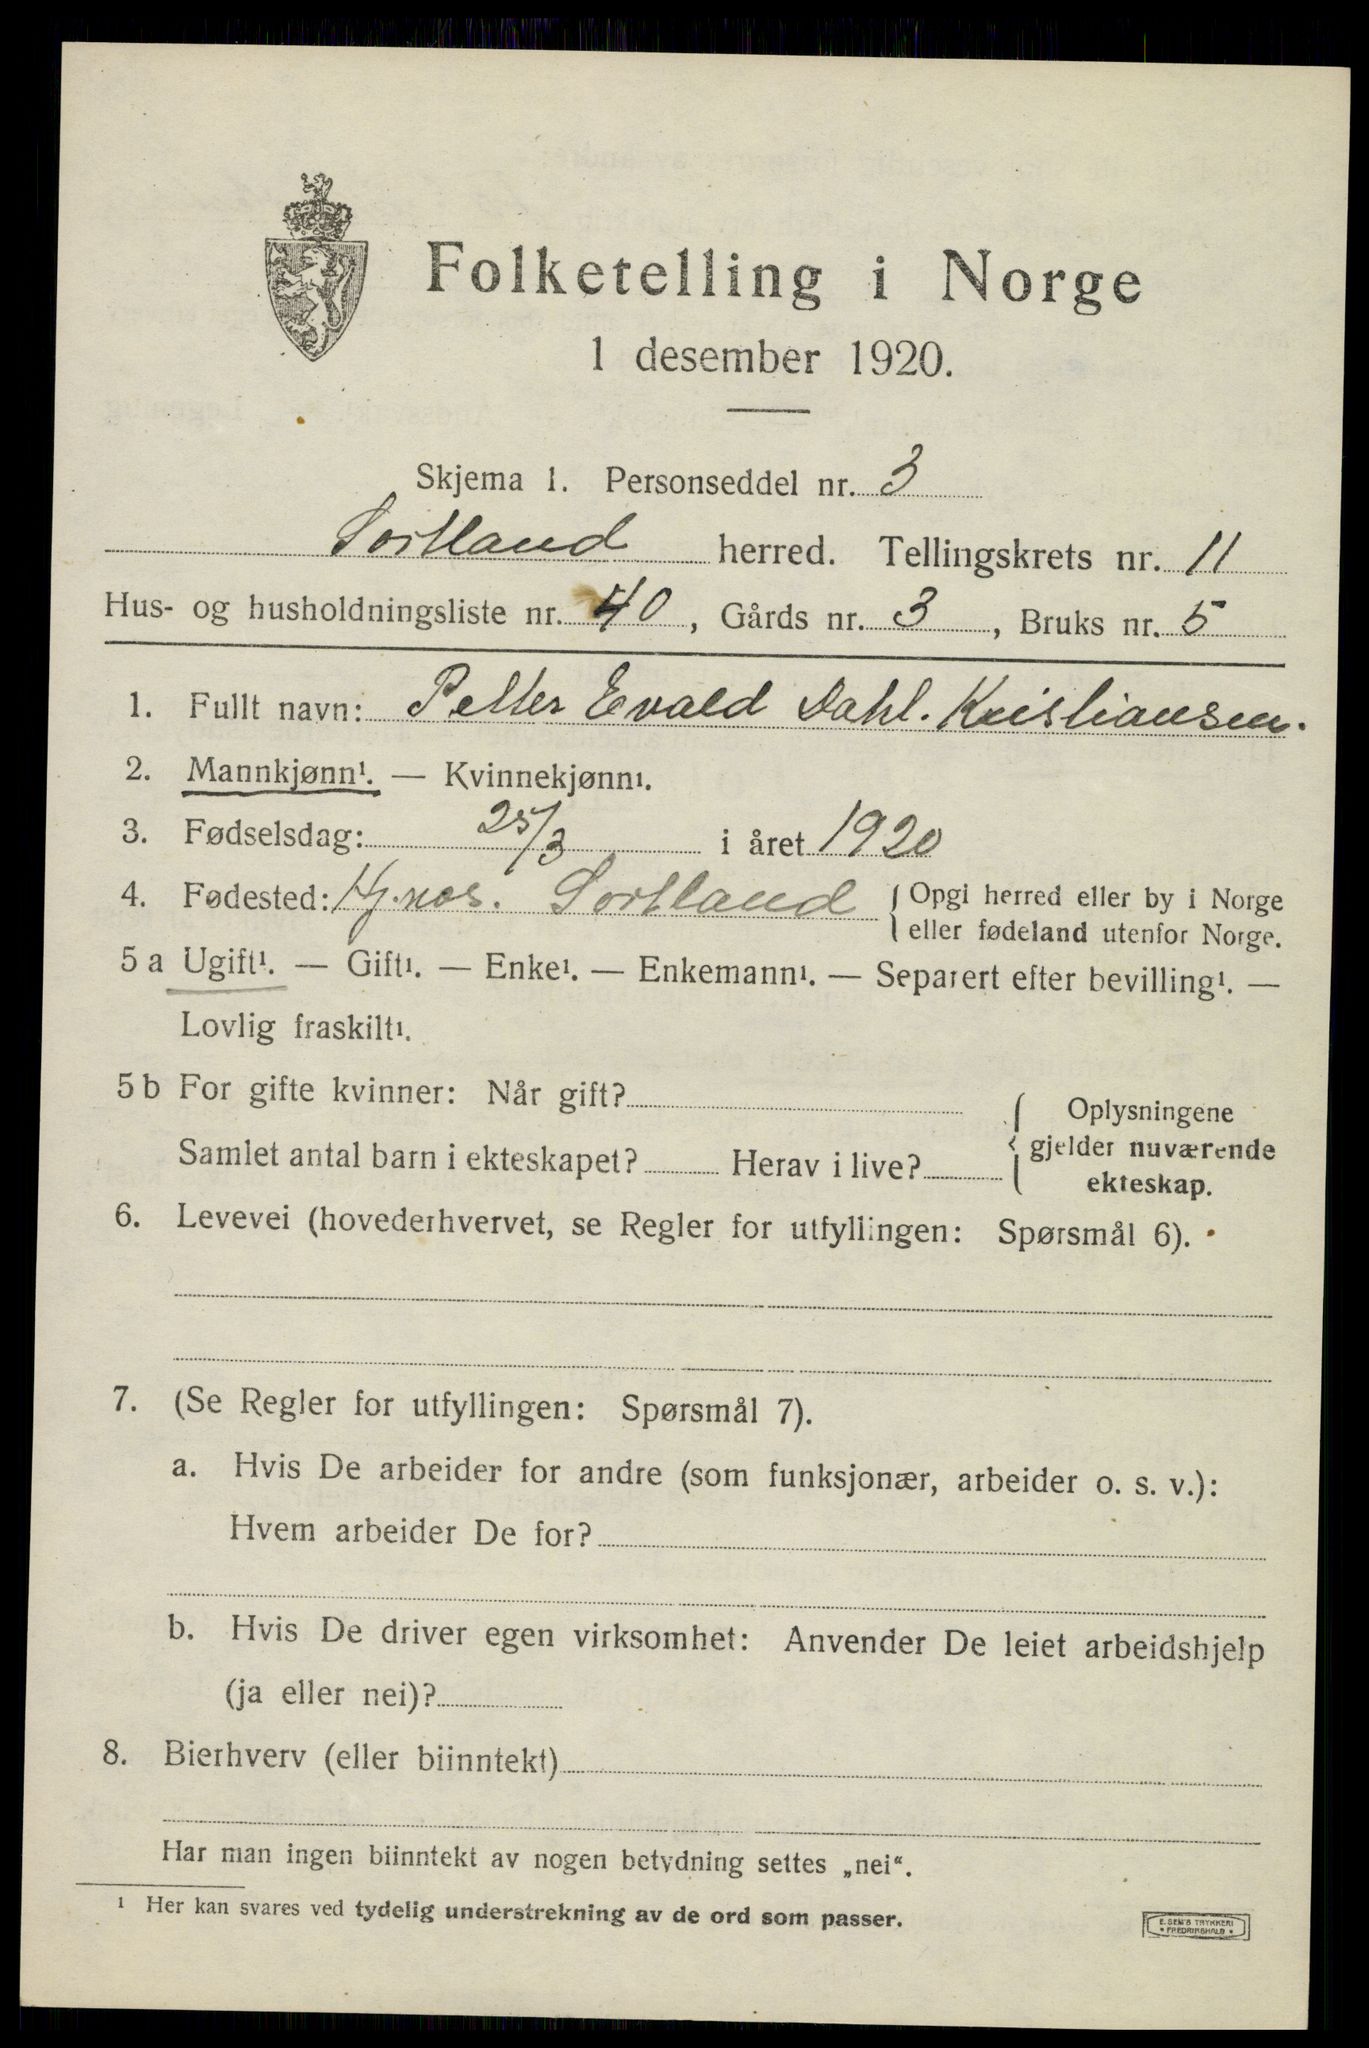 Folketelling i Norge
1 desember 1920.
Skjema 1. Personseddel nr. 3
Sortland herred. Tellingskrets nr. 11
Hus- og husholdningsliste nr. 40, Gårds nr. 3, Bruks nr. 5
1. Fullt navn: Petter Evald Dahl. Kristiansen.
2. Mannkjønn¹. — Kvinnekjønn¹.
3. Fødselsdag: 25/3 i året 1920
4. Fødested: Sortland { Opgi herred eller by i Norge
eller fødeland utenfor Norge.
5 a Ugift¹. — Gift¹. — Enke¹. — Enkemann¹. — Separert efter bevilling¹. —
Lovlig fraskilt¹.
5 b For gifte kvinner: Når gift?
Samlet antal barn i ekteskapet? Herav i live?
{ Oplysningene
gjelder nuværende
ekteskap.
6. Levevei (hovederhvervet, se Regler for utfyllingen: Spørsmål 6).
7. (Se Regler for utfyllingen: Spørsmål 7).
a. Hvis De arbeider for andre (som funksjonær, arbeider o. s. v.):
Hvem arbeider De for?
b. Hvis De driver egen virksomhet: Anvender De leiet arbeidshjelp
(ja eller nei)?
8. Bierhverv (eller biinntekt)
Har man ingen biinntekt av nogen betydning settes „nei“.
¹ Her kan svares ved tydelig understrekning av de ord som passer.
E. SEM'S TRYKKERI
* FREDRIKSHALD *